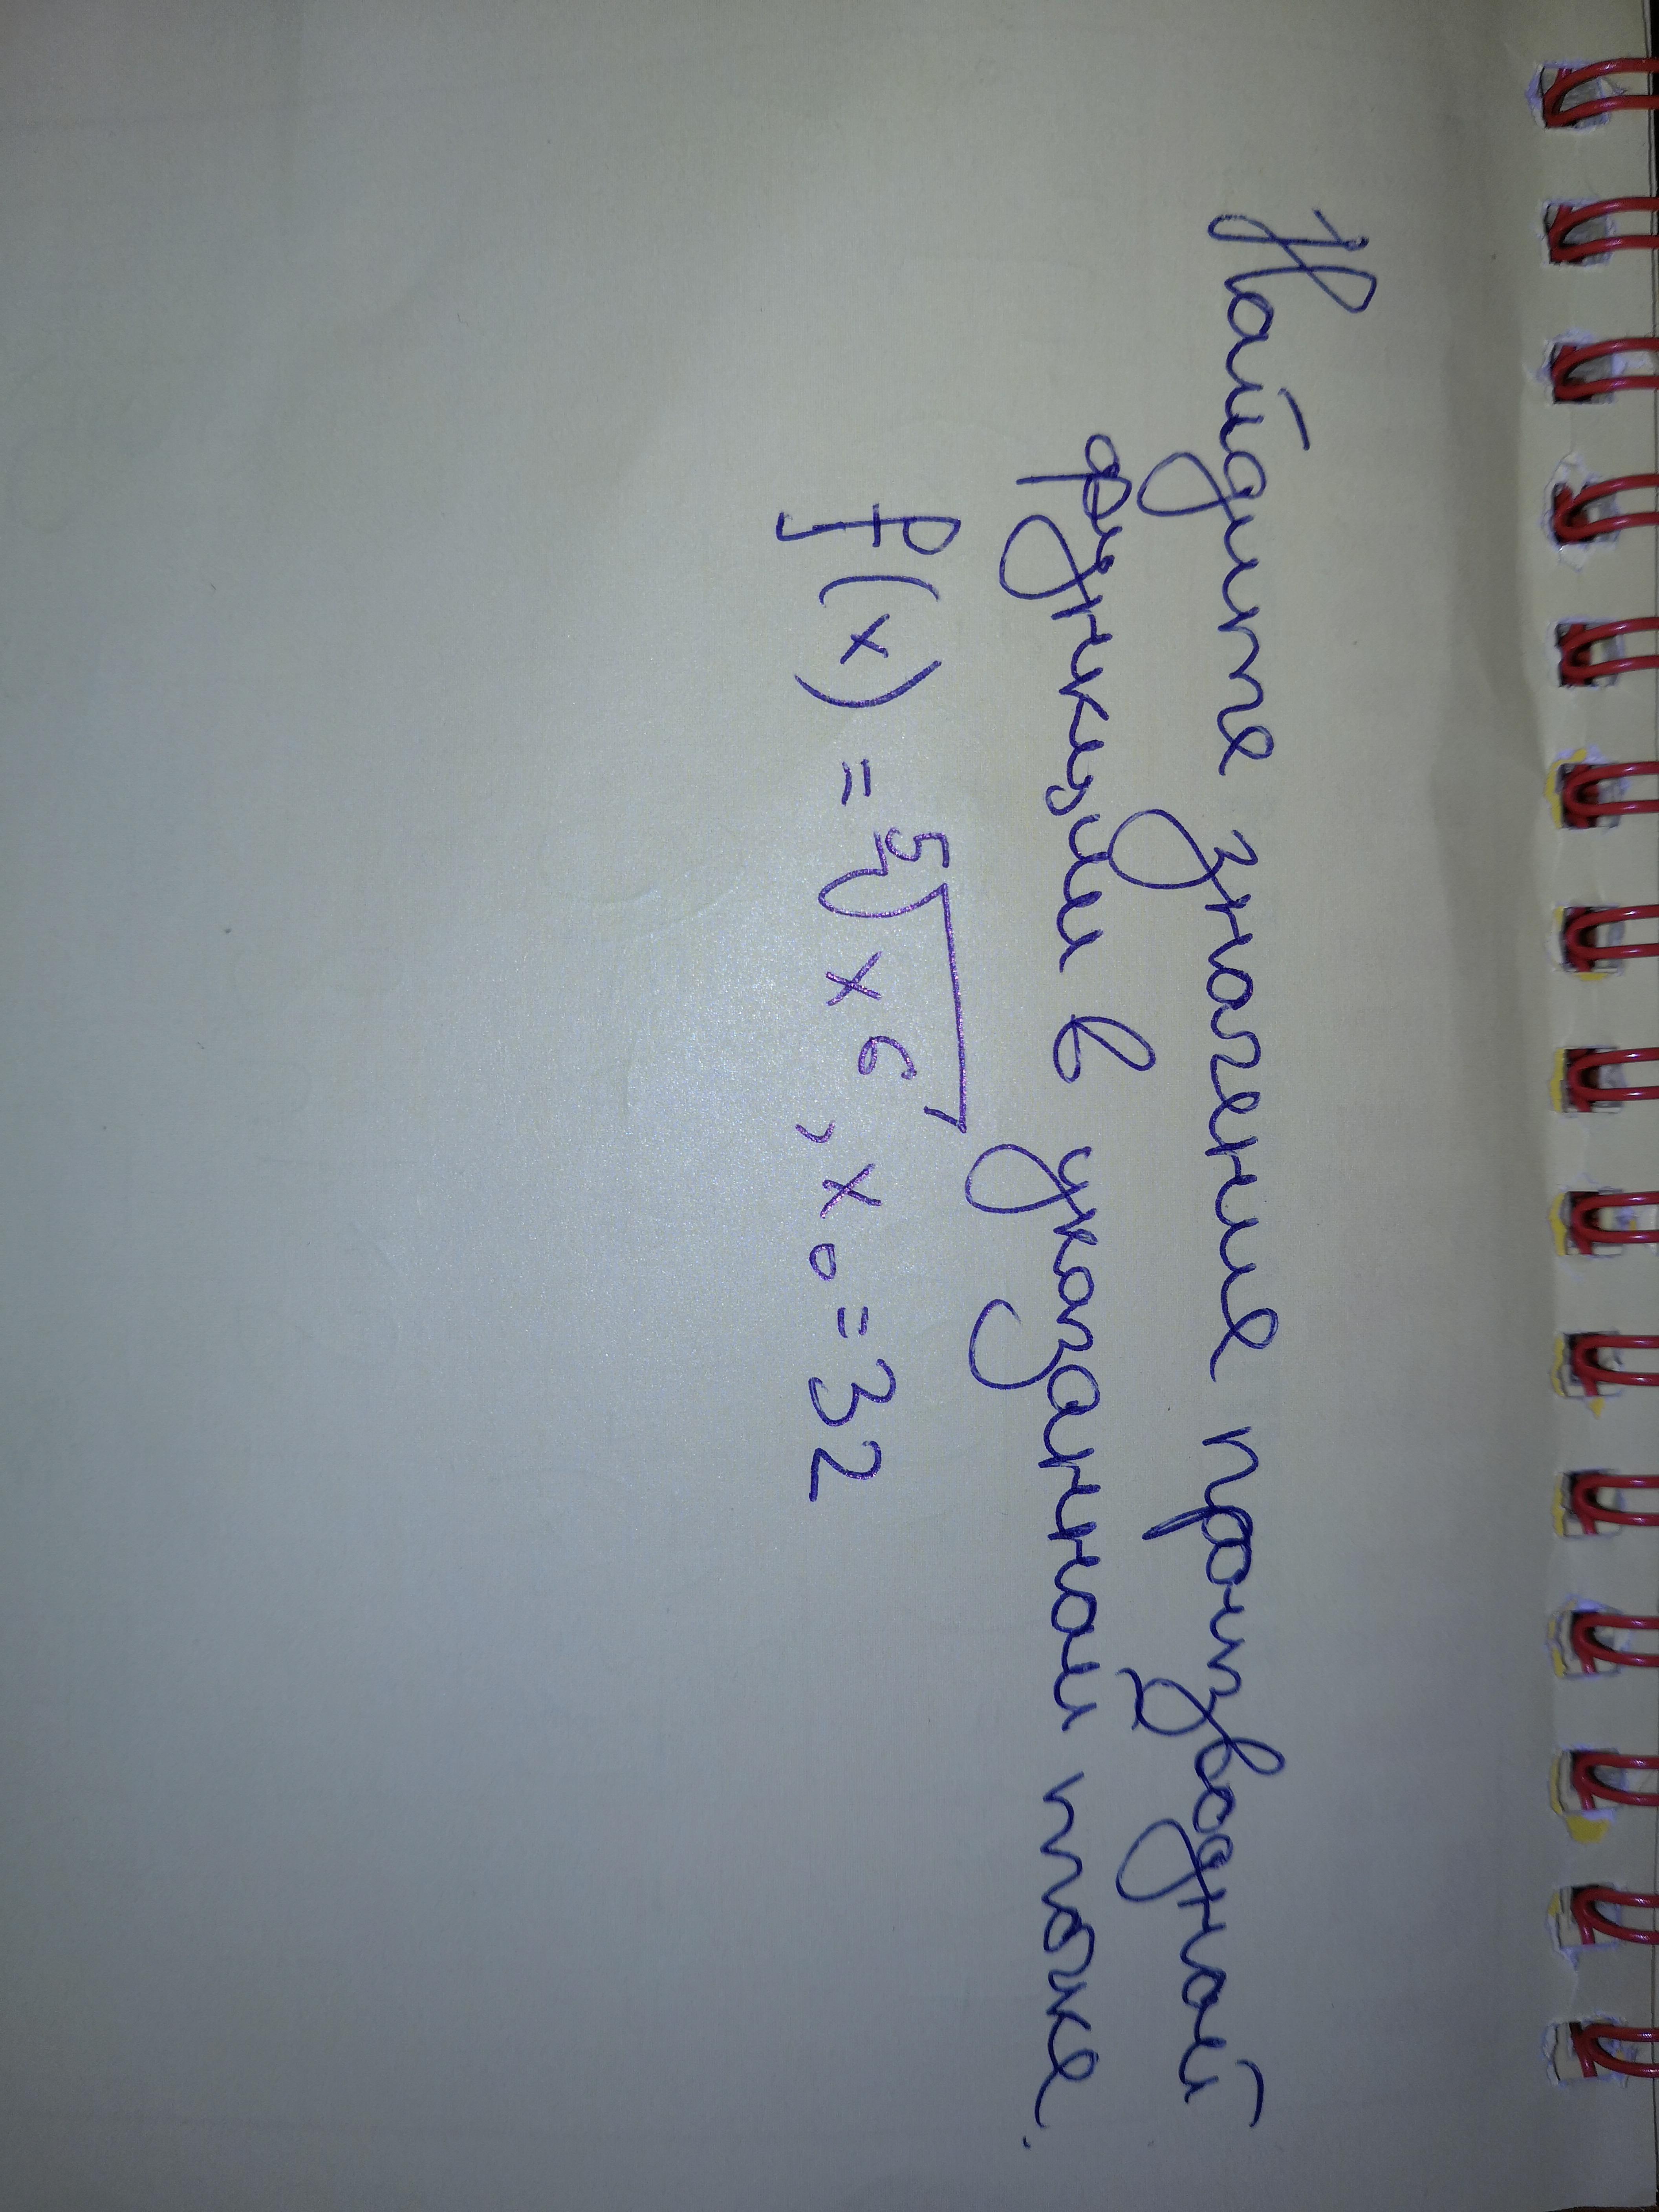 Найдите значение производной
функции в указанной точке.
f(x) = ⁵√x⁶, x₀ = 32